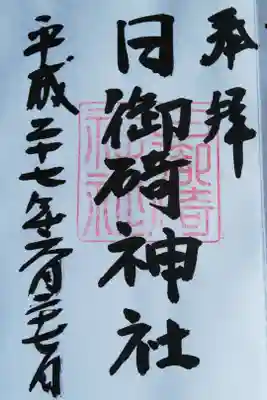 奉拝
日御碕神社
平成二十七年六月二十七日